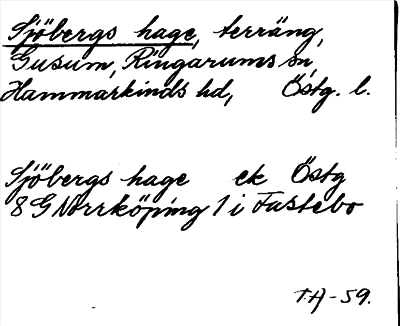 Sjöbergs hage, terräng,
Gusum, Ringarums sn,
Hammarkinds hd, Östg. l.
Sjöbergs hage ek Östg
8 G Norrköping 1 i Fastebo
T.H-59.